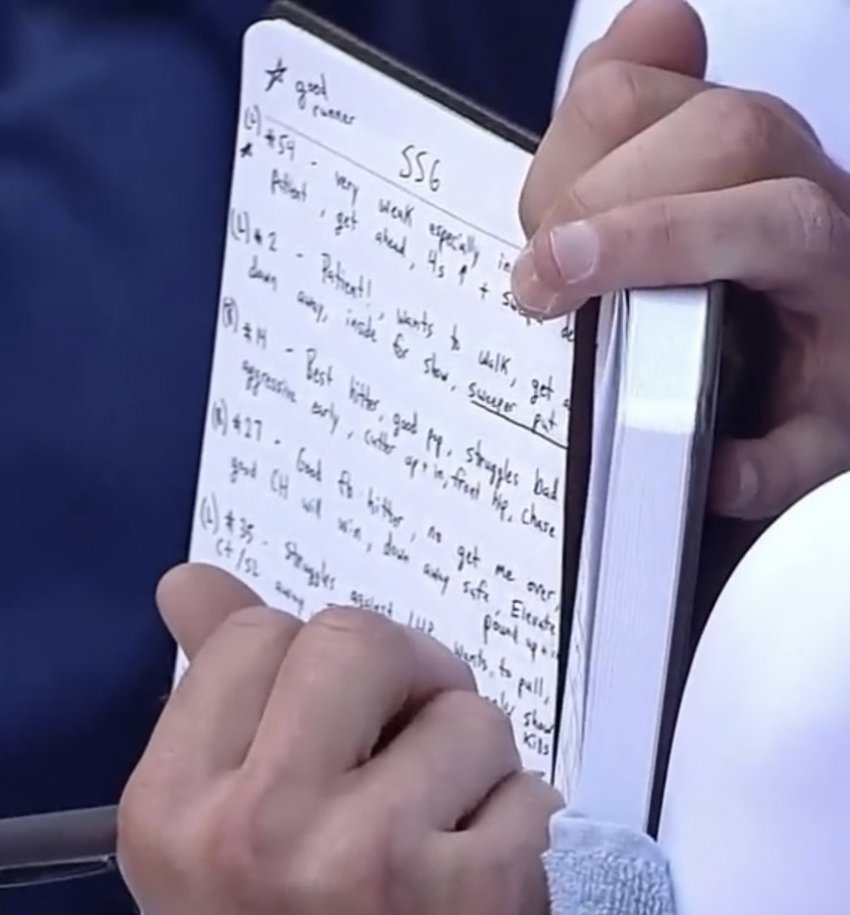 ★ good
runner
SSG
(L) #54 - very weak especially in
★ Patient, get ahead, 4s ↑ +
(L) #2 - Patient!, wants to walk, get
down away, inside for show, sweeper put
(R) #14 - Best hitter, good pop, struggles bad
aggressive early, cutter up + in, front hip, chase
(R) #27 - Good fb hitter, no get me over,
good CH will win, down away safe, Elevate
pound up + in
(L) #35 - struggles against LHP, wants to pull,
Ct/SL away
show
kills